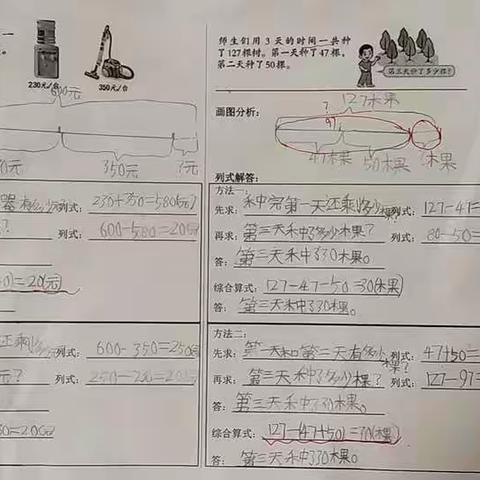 230元/台
350元/台
600元
350元
?元
列式: 230+350=580(元)
列式: 600-580=20(元)
=20(元)
列式: 600-350=250(元)
列式: 250-230=20(元)
=20(元)
师生们用 3 天的时间一共种
了 127棵树。第一天种了 47棵,
第二天种了 50棵。
第三天种了多少棵?
画图分析:
127棵
?
97
47棵
50棵
?棵
列式解答:
方法一:
先求: 种完第一天还剩多少棵 列式: 127-47=
再求: 第三天种了多少棵? 列式: 80-50=
答: 第三天种了30棵。
综合算式: 127-47-50=30(棵)
答: 第三天种了30棵。
方法二:
先求: 第一天和第二天有多少棵? 列式: 47+50=
再求: 第三天种了多少棵? 列式: 127-97=
答: 第三天种了30棵。
综合算式: 127-(47+50)=30(棵)
答: 第三天种了30棵。